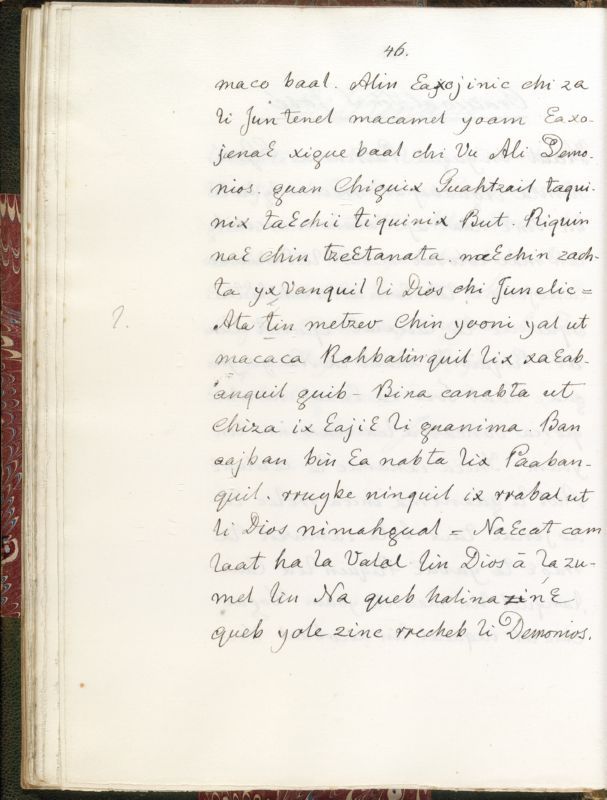 46.
maco baal. Alin Eaxojinic chi za
li Jun tenel macamel yoam Eaxo-
jenaE xigue baal chi Vu Ali Demo-
nios. guan Chiguix Guahtzail taqui-
nix taEchii tiquinix But. Riquin
naE chin tzeEtanata. maEchin zach-
ta yx Vanquil li Dios chi Junelic =
Ata tin metzev Chin yooni yal ut
macaca Rahbalinquil lix xaEab-
anquil guib - Bina canabta ut
Chiza ix EajiE li guanima. Ban
aajban bin Ea nabta lix Paaban-
quil. rruyke ninquil ix rrabal ut
li Dios nimahgual = NaEcat cam
laat ha la Valal lin Dios ā la zu-
mel lin Na queb halina zinE
queb yole zinc rrecheb li Demonios.